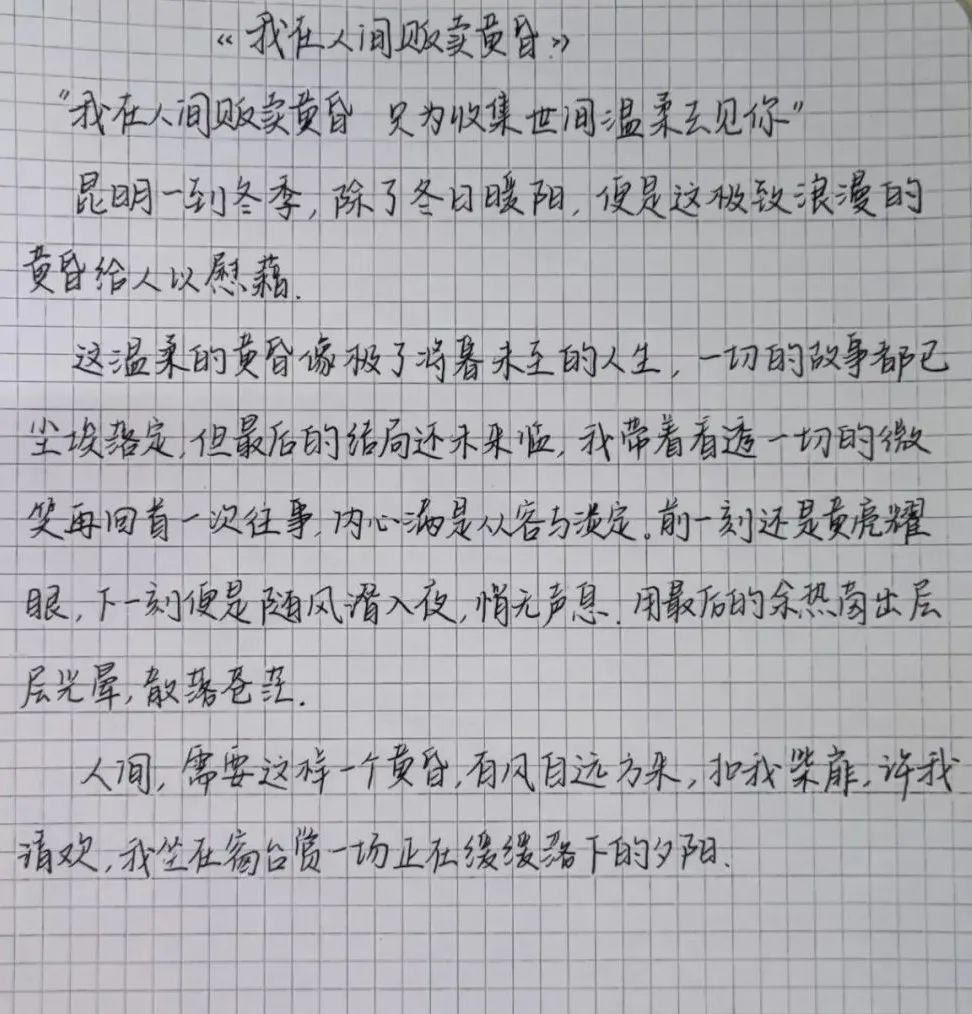 《我在人间贩卖黄昏》
"我在人间贩卖黄昏 只为收集世间温柔去见你"
昆明一到冬季,除了冬日暖阳,便是这极致浪漫的
黄昏给人以慰藉.
这温柔的黄昏像极了将暮未至的人生,一切的故事都已
尘埃落定,但最后的结局还未来临,我带着看透一切的微
笑再回首一次往事,内心满是从容与淡定。前一刻还是黄亮耀
眼,下一刻便是随风潜入夜,悄无声息.用最后的余热荡出层
层光晕,散落苍茫.
人间,需要这样一个黄昏,有风自远方来,扣我柴扉,许我
清欢,我坐在窗台赏一场正在缓缓落下的夕阳.